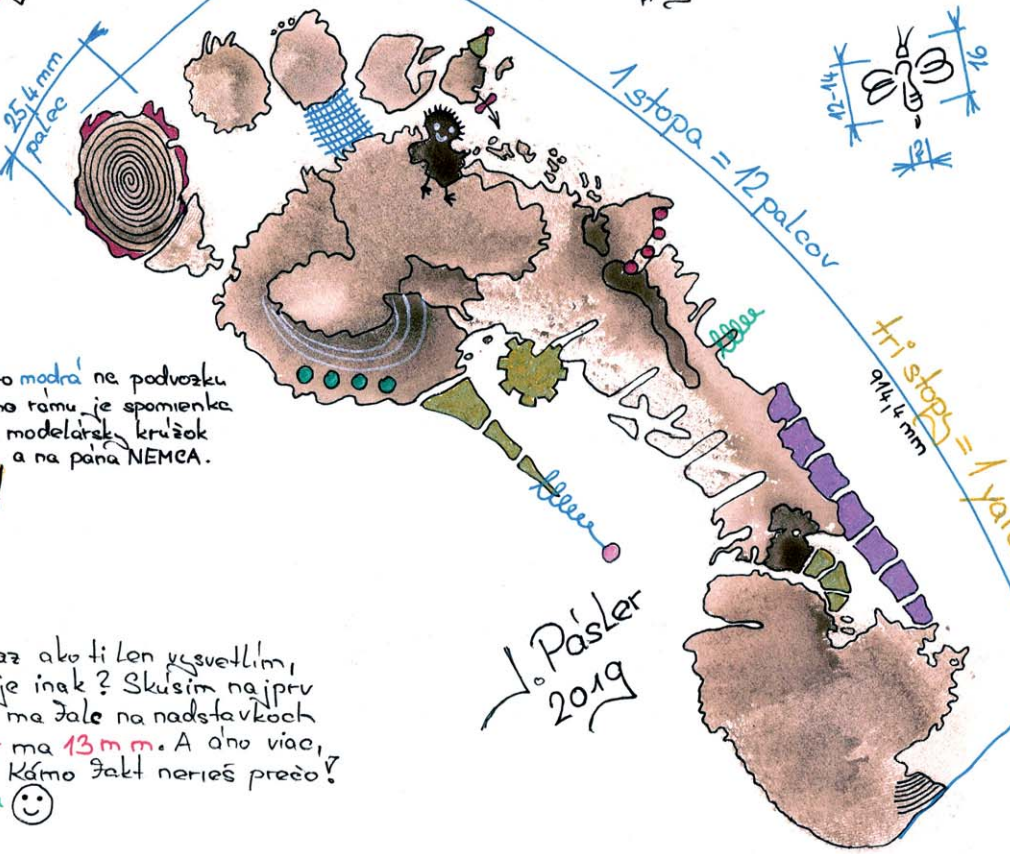 25,4 mm
palec
1 stopa = 12 palcov
12-14
16
12
tri stopy = 1 yard
914,4 mm
o modrá na podvozku
o rámu je spomienka
modelársky krúžok
a na pána NEMCA.
J. Pásler
2019
az ako ti len vysvetlím,
je inak? Skúsim najprv
ma ƒale na nadstavkoch
ma 13 mm. A áno viac,
Kámo fakt nerieš prečo!?